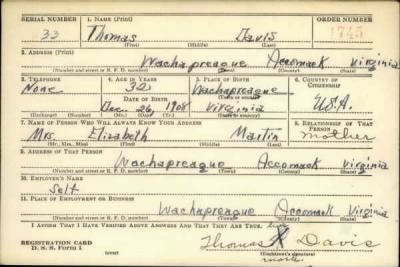 SERIAL NUMBER 1. NAME (Print) ORDER NUMBER
33 Thomas Davis 1745
(First) (Middle) (Last)
2. ADDRESS (Print)
Wachapreague Accomack Virginia
(Number and street or R. F. D. number) (Town) (County) (State)
3. TELEPHONE 4. AGE IN YEARS 5. PLACE OF BIRTH 6. COUNTRY OF CITIZENSHIP
None 32 Wachapreague
DATE OF BIRTH (Town or county)
Dec. 26, 1908 Virginia U.S.A.
(Exchange) (Number) (Mo.) (Day) (Yr.) (State or country)
7. NAME OF PERSON WHO WILL ALWAYS KNOW YOUR ADDRESS 8. RELATIONSHIP OF THAT PERSON
Mrs. Elizabeth Martin mother
(Mr., Mrs., Miss) (First) (Middle) (Last)
9. ADDRESS OF THAT PERSON
Wachapreague Accomack Virginia
(Number and street or R. F. D. number) (Town) (County) (State)
10. EMPLOYER'S NAME
Self
11. PLACE OF EMPLOYMENT OR BUSINESS
Wachapreague Accomack Virginia
(Number and street or R. F. D. number) (Town) (County) (State)
I AFFIRM THAT I HAVE VERIFIED ABOVE ANSWERS AND THAT THEY ARE TRUE. his
Thomas X Davis
REGISTRATION CARD
D. S. S. Form 1 (over) (Registrant's signature)
mark